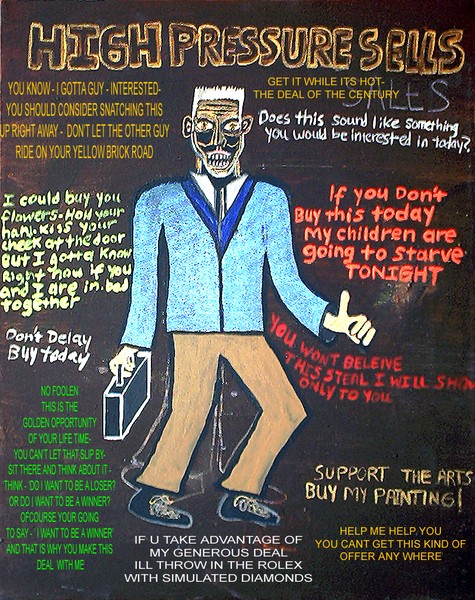 HIGH PRESSURE SELLS
SALES
YOU KNOW - I GOTTA GUY - INTERESTED-
YOU SHOULD CONSIDER SNATCHING THIS
UP RIGHT AWAY - DON'T LET THE OTHER GUY
RIDE ON YOUR YELLOW BRICK ROAD
GET IT WHILE ITS HOT-
THE DEAL OF THE CENTURY
Does this sound like something
you would be interested in today?
I could buy you
flowers-Hold your
han. kiss your
cheek at the door
But I gotta Know
Right now if you
and I are in. bed
together
If you Don't
Buy this today
My children are
going to starve
TONIGHT
Don't Delay
Buy today
YOU WONT BELEIVE
THIS STEAL I WILL SHOW
ONLY TO YOU
NO FOOLEN
THIS IS THE
GOLDEN OPPORTUNITY
OF YOUR LIFE TIME-
YOU CAN'T LET THAT SLIP BY-
SIT THERE AND THINK ABOUT IT -
THINK - 'DO I WANT TO BE A LOSER?
OR DO I WANT TO BE A WINNER?
OFCOURSE YOUR GOING
TO SAY - 'I WANT TO BE A WINNER'
AND THAT IS WHY YOU MAKE THIS
DEAL WITH ME
SUPPORT THE ARTS
BUY MY PAINTING!
IF U TAKE ADVANTAGE OF
MY GENEROUS DEAL
ILL THROW IN THE ROLEX
WITH SIMULATED DIAMONDS
HELP ME HELP YOU
YOU CANT GET THIS KIND OF
OFFER ANY WHERE